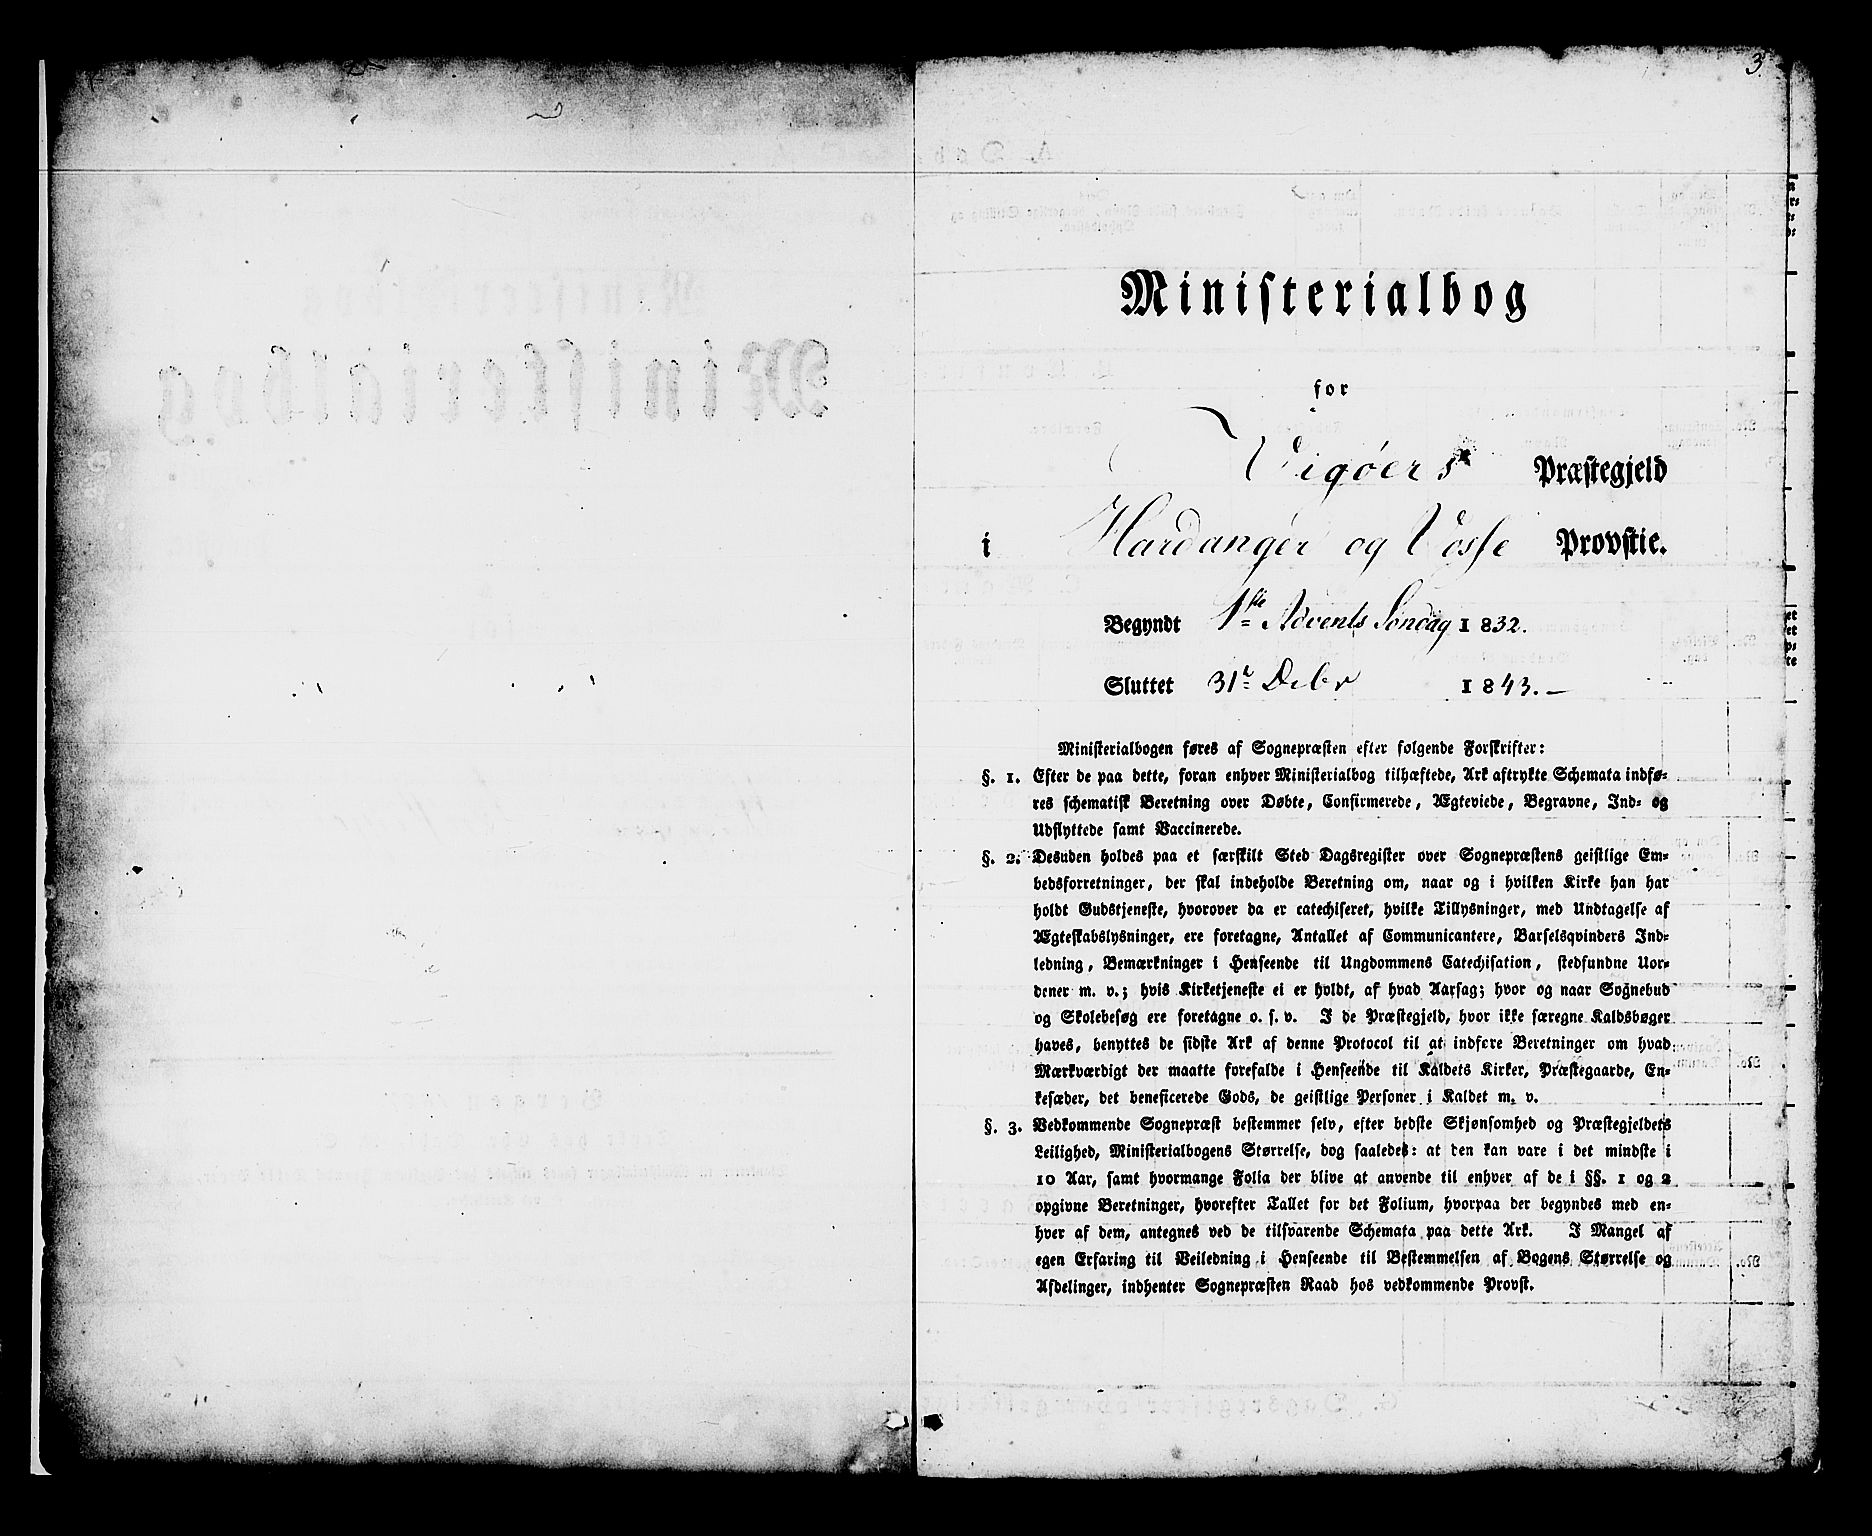 3
Ministerialbog
for
Vigøers Præstegjeld
i Hardanger og Vosse Provstie.
Begyndt 1ste Advents Søndag 1832.
Sluttet 31te Debr 1843.—
Ministerialbogen føres af Sognepræsten efter følgende Forskrifter:
§. 1. Efter de paa dette, foran enhver Ministerialbog tilhæftede, Ark aftrykte Schemata indfø-
res schematisk Beretning over Døbte, Confirmerede, Ægteviede, Begravne, Ind- og
Udflyttede samt Vaccinerede.
§. 2. Desuden holdes paa et særskilt Sted Dagsregister over Sognepræstens geistlige Em-
bedsforretninger, der skal indeholde Beretning om, naar og i hvilken Kirke han har
holdt Gudstjeneste, hvorover da er catechiseret, hvilke Tillysninger, med Undtagelse af
Ægteskabslysninger, ere foretagne, Antallet af Communicantere, Barselsqvinders Ind-
ledning, Bemærkninger i Henseende til Ungdommens Catechisation, stedfundne Uor-
dener m. v.; hvis Kirketjeneste ei er holdt, af hvad Aarsag; hvor og naar Sognebud
og Skolebesøg ere foretagne o. s. v. I de Præstegjeld, hvor ikke særegne Kaldsbøger
haves, benyttes de sidste Ark af denne Protocol til at indføre Beretninger om hvad
Mærkværdigt der maatte forefalde i Henseende til Kaldets Kirker, Præstegaarde, En-
kesæder, det beneficerede Gods, de geistlige Personer i Kaldet m. v.
§. 3. Vedkommende Sognepræst bestemmer selv, efter bedste Skjønsomhed og Præstegjeldets
Leilighed, Ministerialbogens Størrelse, dog saaledes: at den kan vare i det mindste i
10 Aar, samt hvormange Folia der blive at anvende til enhver af de i §§. 1 og 2
opgivne Beretninger, hvorefter Tallet for det Folium, hvorpaa der begyndes med en-
hver af dem, antegnes ved de tilsvarende Schemata paa dette Ark. I Mangel af
egen Erfaring til Veiledning i Henseende til Bestemmelsen af Bogens Størrelse og
Afdelinger, indhenter Sognepræsten Raad hos vedkommende Provst.